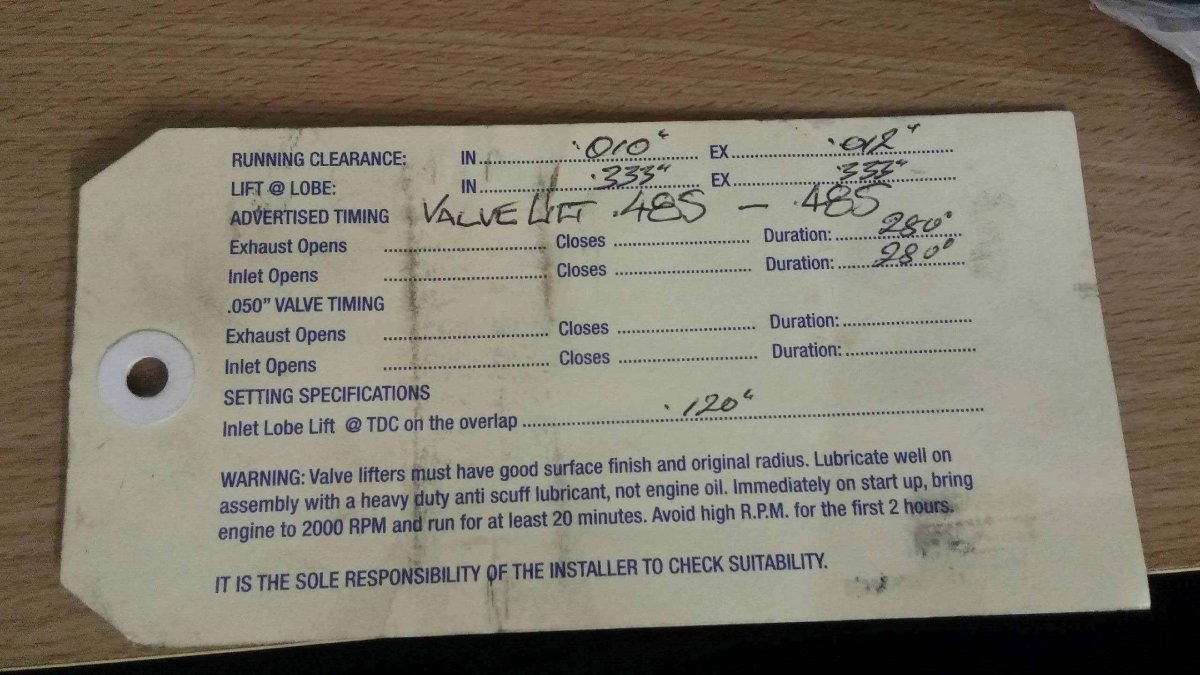 RUNNING CLEARANCE: IN .010" EX .012"
LIFT @ LOBE: IN .333" EX .333"
ADVERTISED TIMING VALVE LIFT .485 - .485
Exhaust Opens Closes Duration: 280°
Inlet Opens Closes Duration: 280°
.050" VALVE TIMING
Exhaust Opens Closes Duration:
Inlet Opens Closes Duration:
SETTING SPECIFICATIONS
Inlet Lobe Lift @ TDC on the overlap .120"
WARNING: Valve lifters must have good surface finish and original radius. Lubricate well on
assembly with a heavy duty anti scuff lubricant, not engine oil. Immediately on start up, bring
engine to 2000 RPM and run for at least 20 minutes. Avoid high R.P.M. for the first 2 hours.
IT IS THE SOLE RESPONSIBILITY OF THE INSTALLER TO CHECK SUITABILITY.